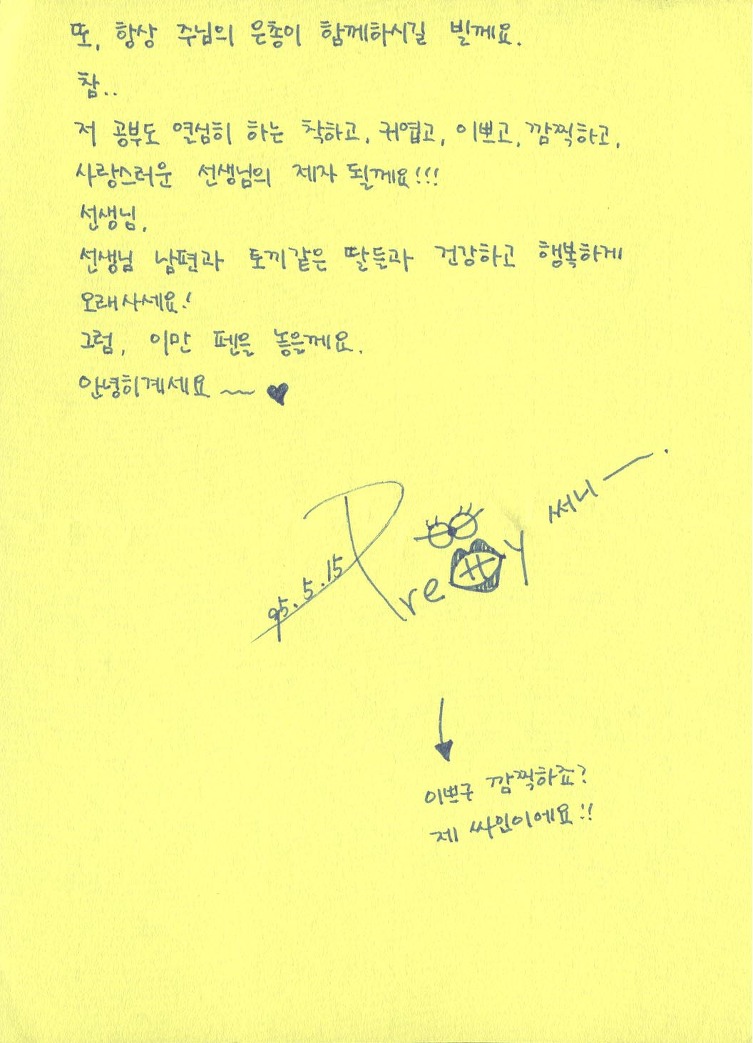 또, 항상 주님의 은총이 함께하시길 빌께요.
참..
저 공부도 열심히 하는 착하고, 귀엽고, 이쁘고, 깜찍하고,
사랑스러운 선생님의 제자 될께요!!!
선생님,
선생님 남편과 토끼같은 딸들과 건강하고 행복하게
오래사세요!
그럼, 이만 펜을 놓을께요.
안녕히계세요 ~~ ♥
Pretty 써니 —.
95.5.15
↓
이쁘구 깜찍하죠?
제 싸인이에요!!